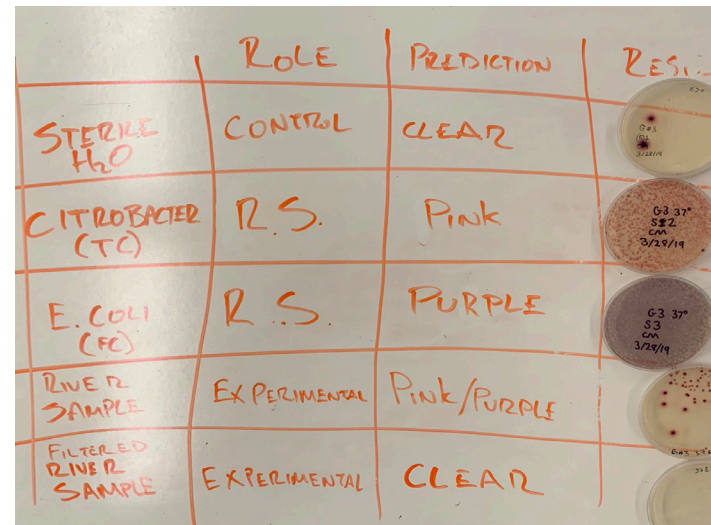 ROLE PREDICTION
STERILE H2O CONTROL CLEAR
G#3
3/28/19
CITROBACTER (TC) R.S. PINK
G3 37°
CM
3/28/19
E. COLI (FC) R.S. PURPLE
G3 37°
S3
CM
3/28/19
RIVER SAMPLE EXPERIMENTAL PINK/PURPLE
FILTERED RIVER SAMPLE EXPERIMENTAL CLEAR